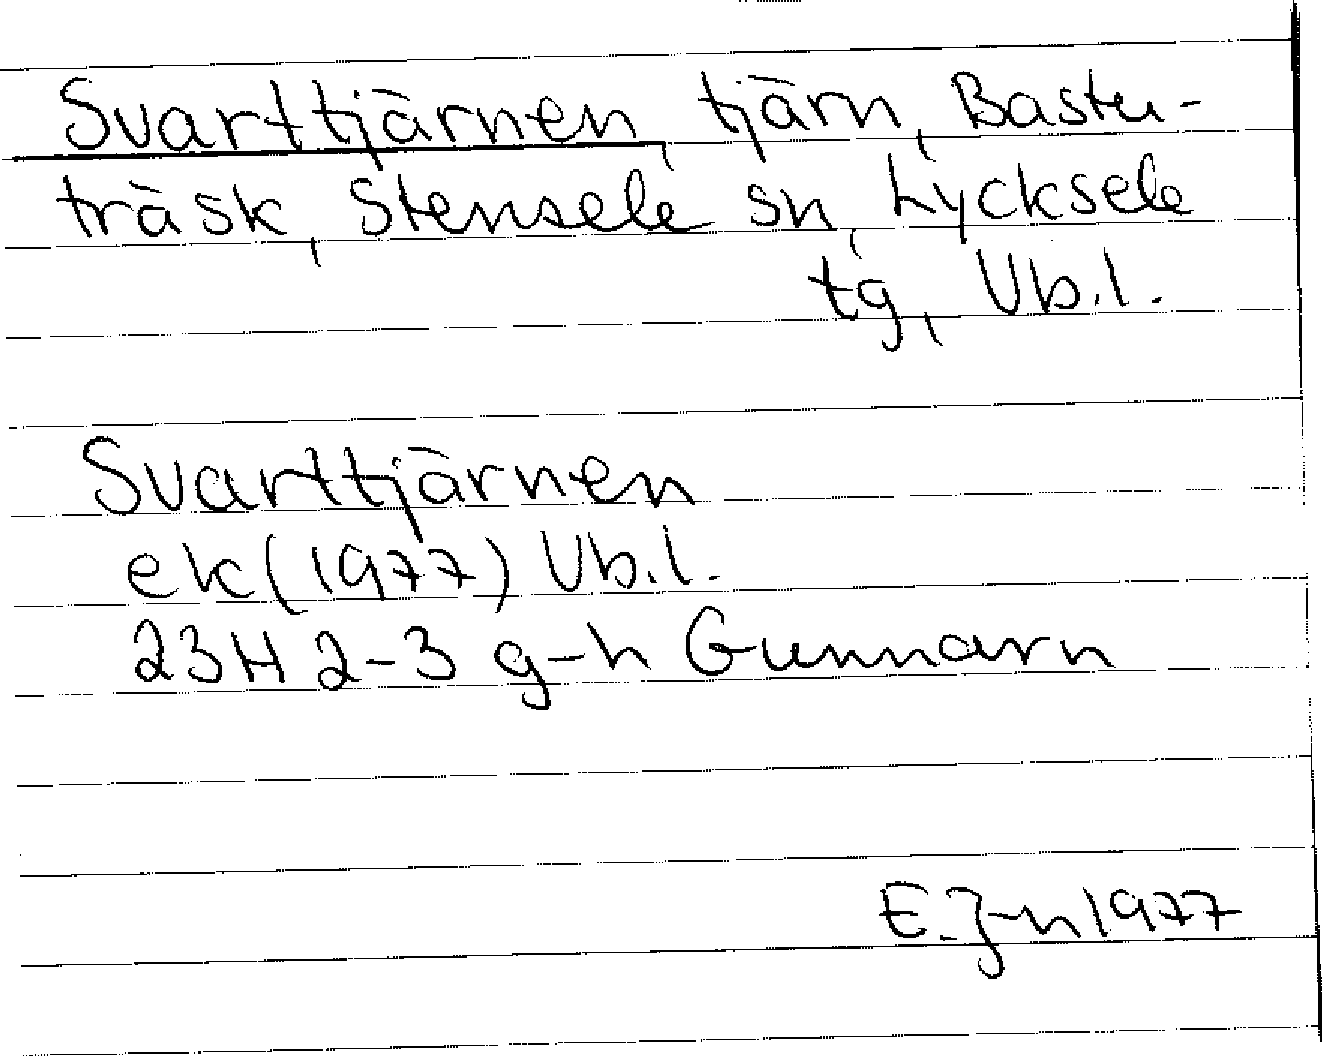 Svarttjärnen, tjärn, Bastu-
träsk, Stensele sn, Lycksele
tg, Vb.l.
Svarttjärnen
ek(1977) Vb.l.
23H 2-3 g-h Gunnarn
E.J-n 1977